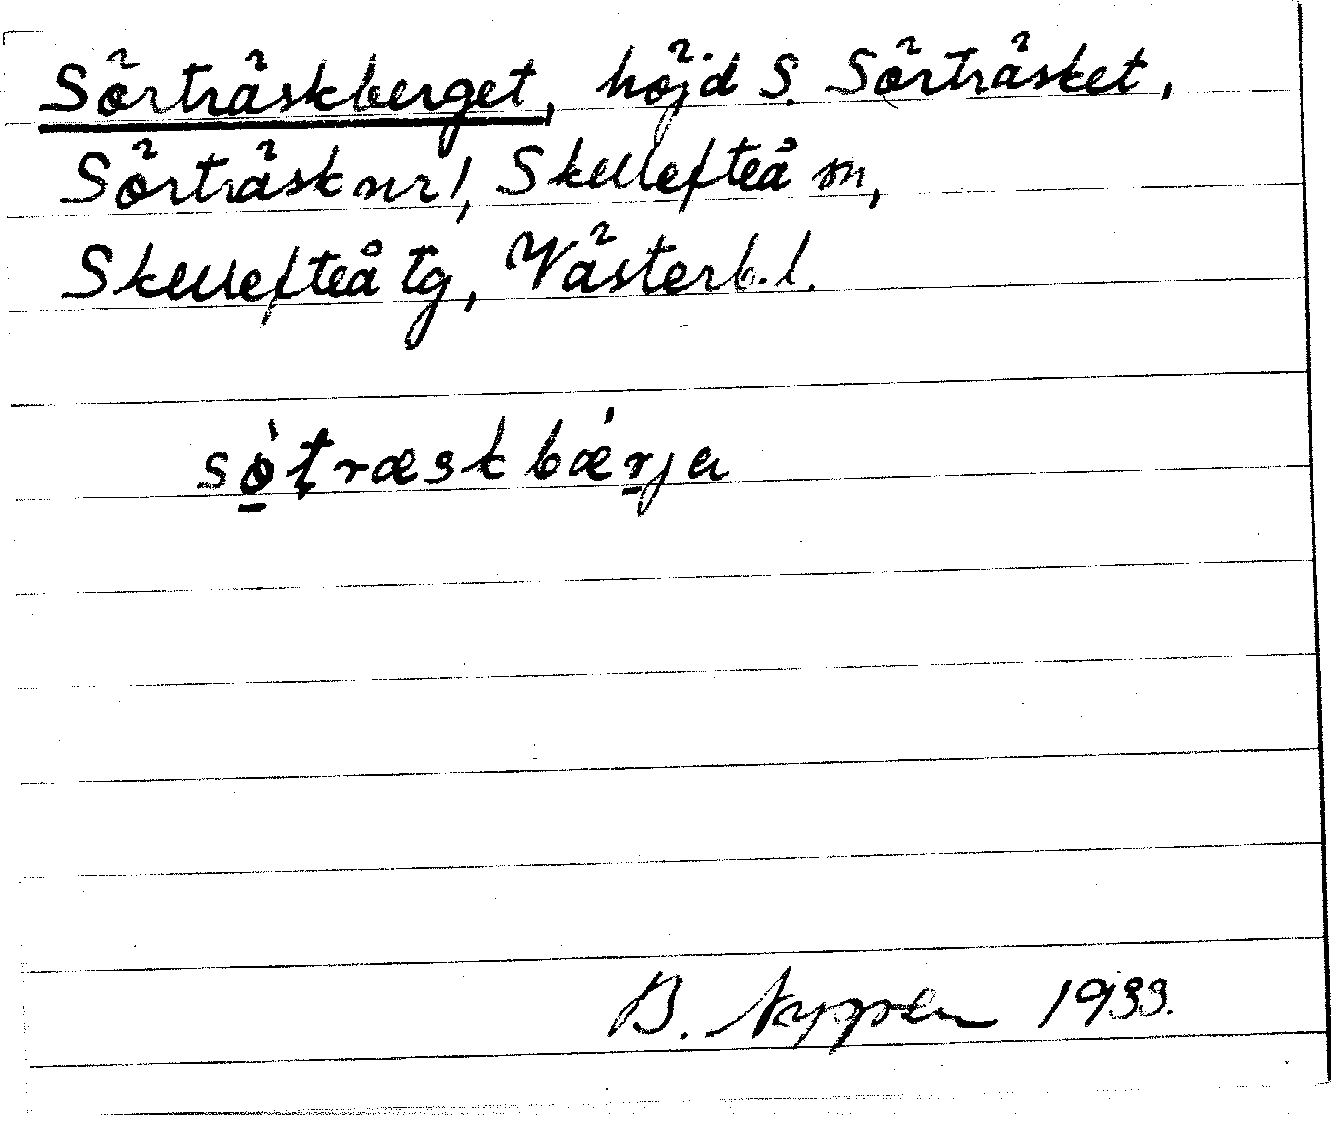 Sörträskberget, höjd S. Sörträsket,
Sörträsk nr 1, Skellefteå sn,
Skellefteå tg, Västerb. l.
sö̀ṯræskbǽṟja
B. 1933.